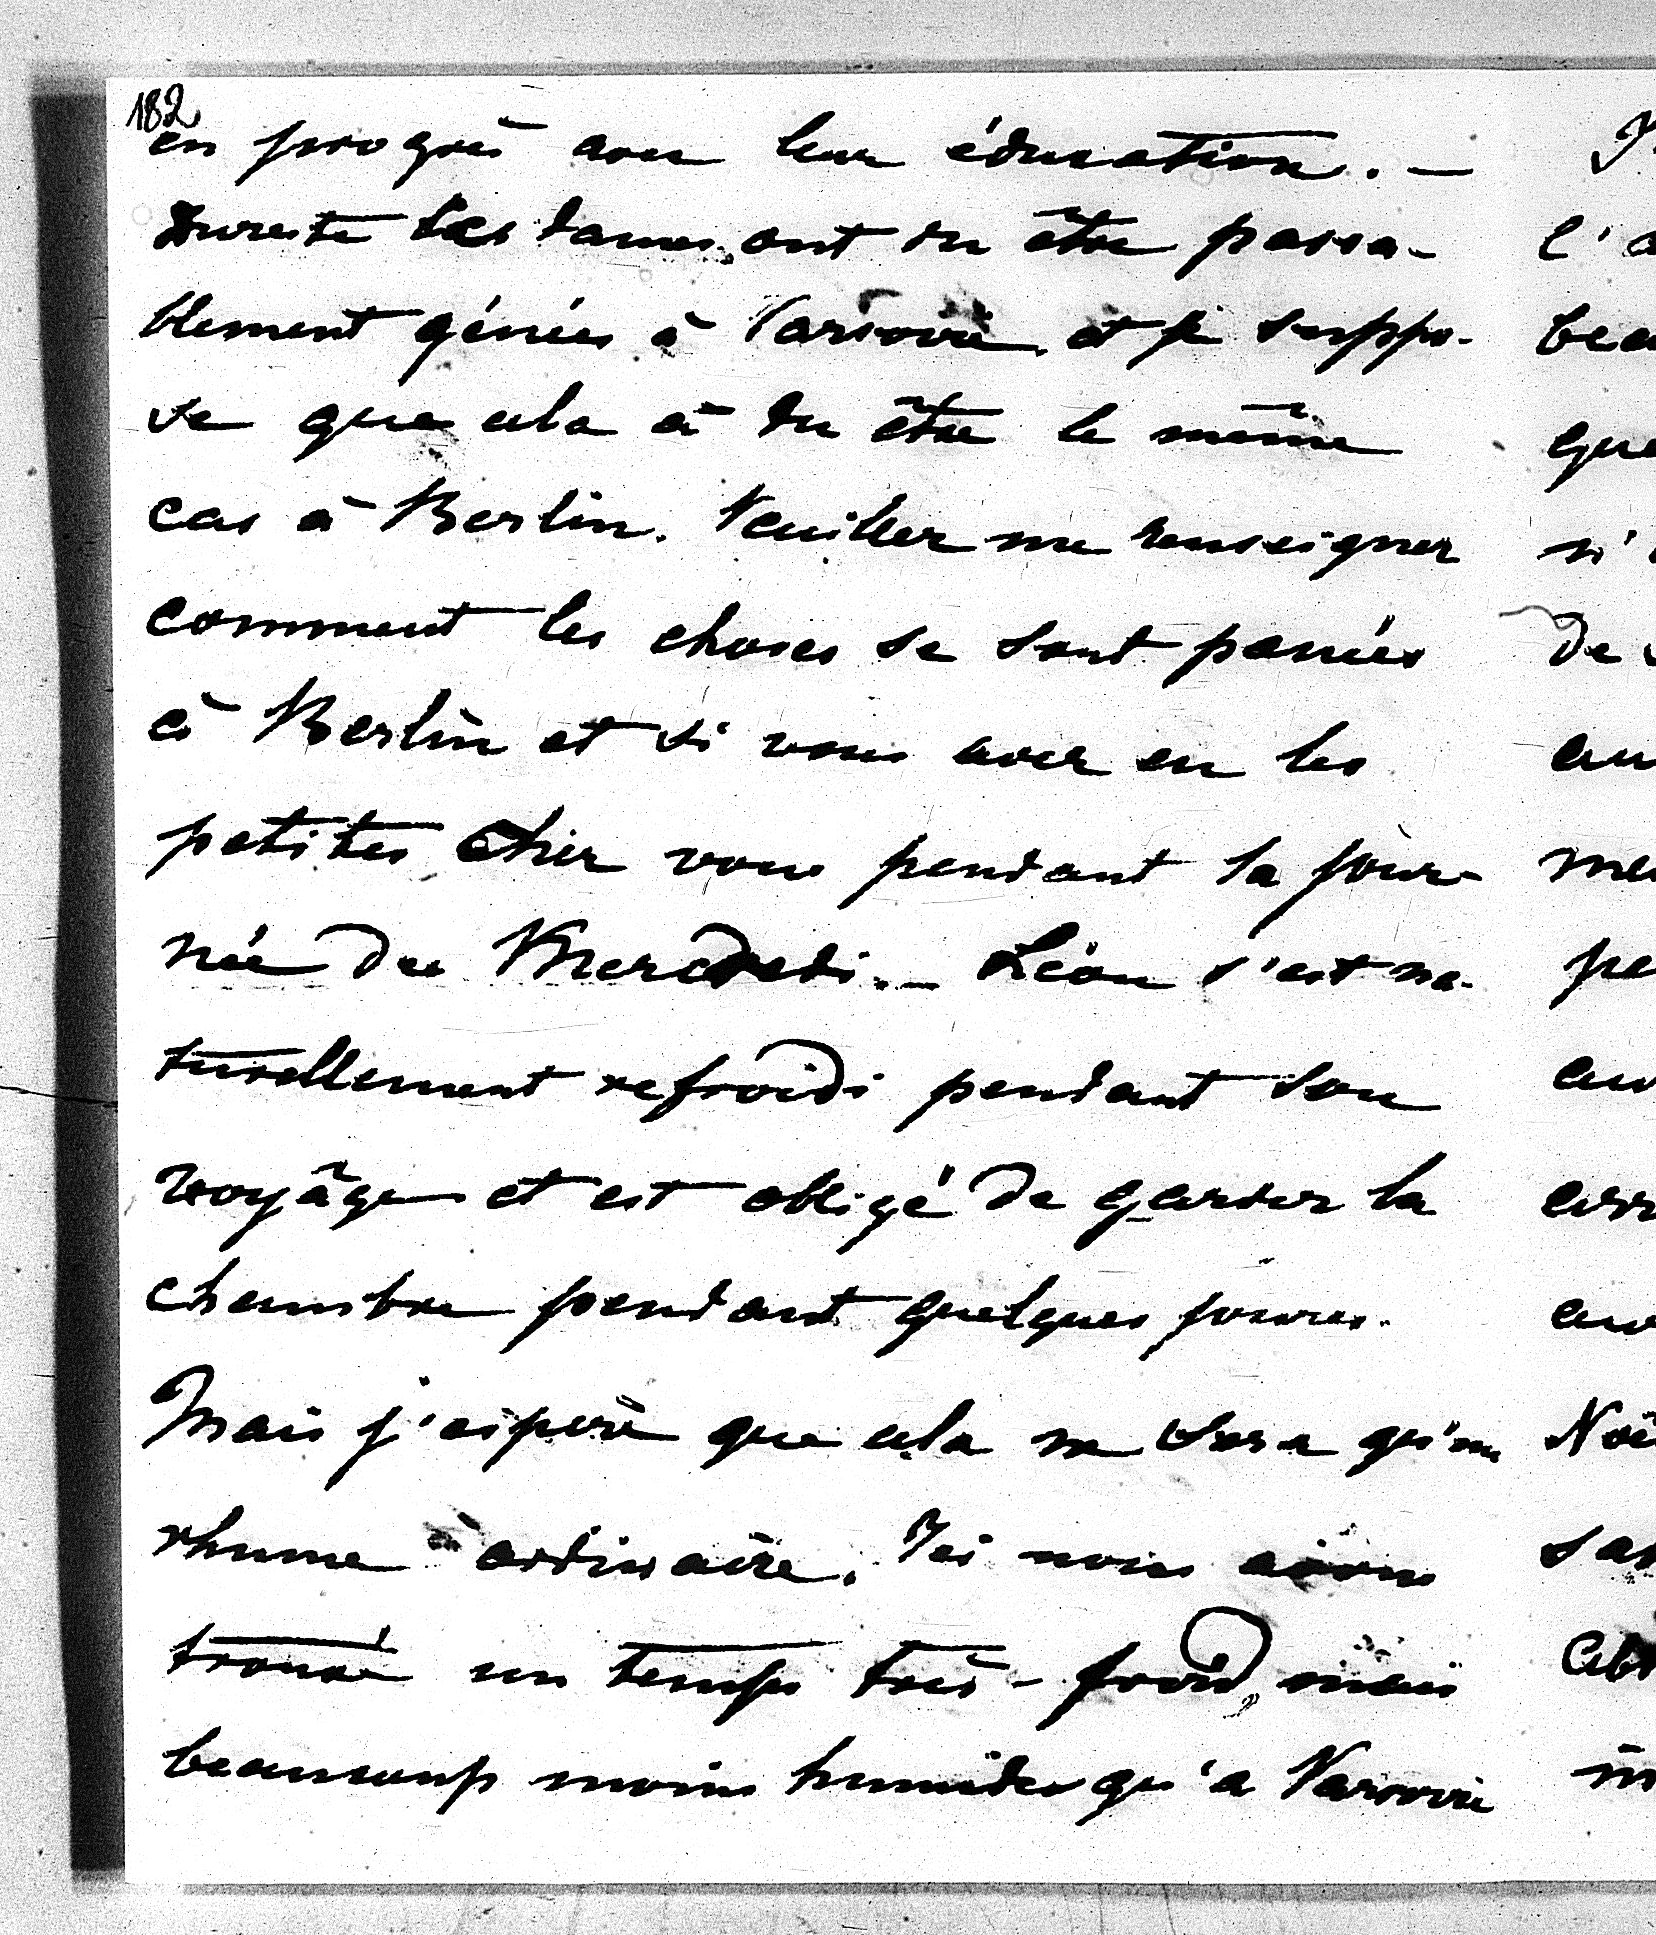 182
en progrès avec leur éducation. —
Dureste les dames, ont du être passa-
blement génées à Varsovie et je suppo-
se que cela à du être le même
cas à Berlin. Veuillez me renseigner
comment les choses se sont passées
à Berlin et si vous avez eu les
petites chez vous pendant la jour-
née du Mercredi. — Léon s'est na-
turellement refroidi pendant son
voyâge et est obligé de garder la
chambre pendant quelques jours.
Mais j'espère que cela ne sera qu'un
rhume ordinaire. Ici nous avons
trouvé un temps très-froid, mais
beaucoup moins humide qu'a Varsovie